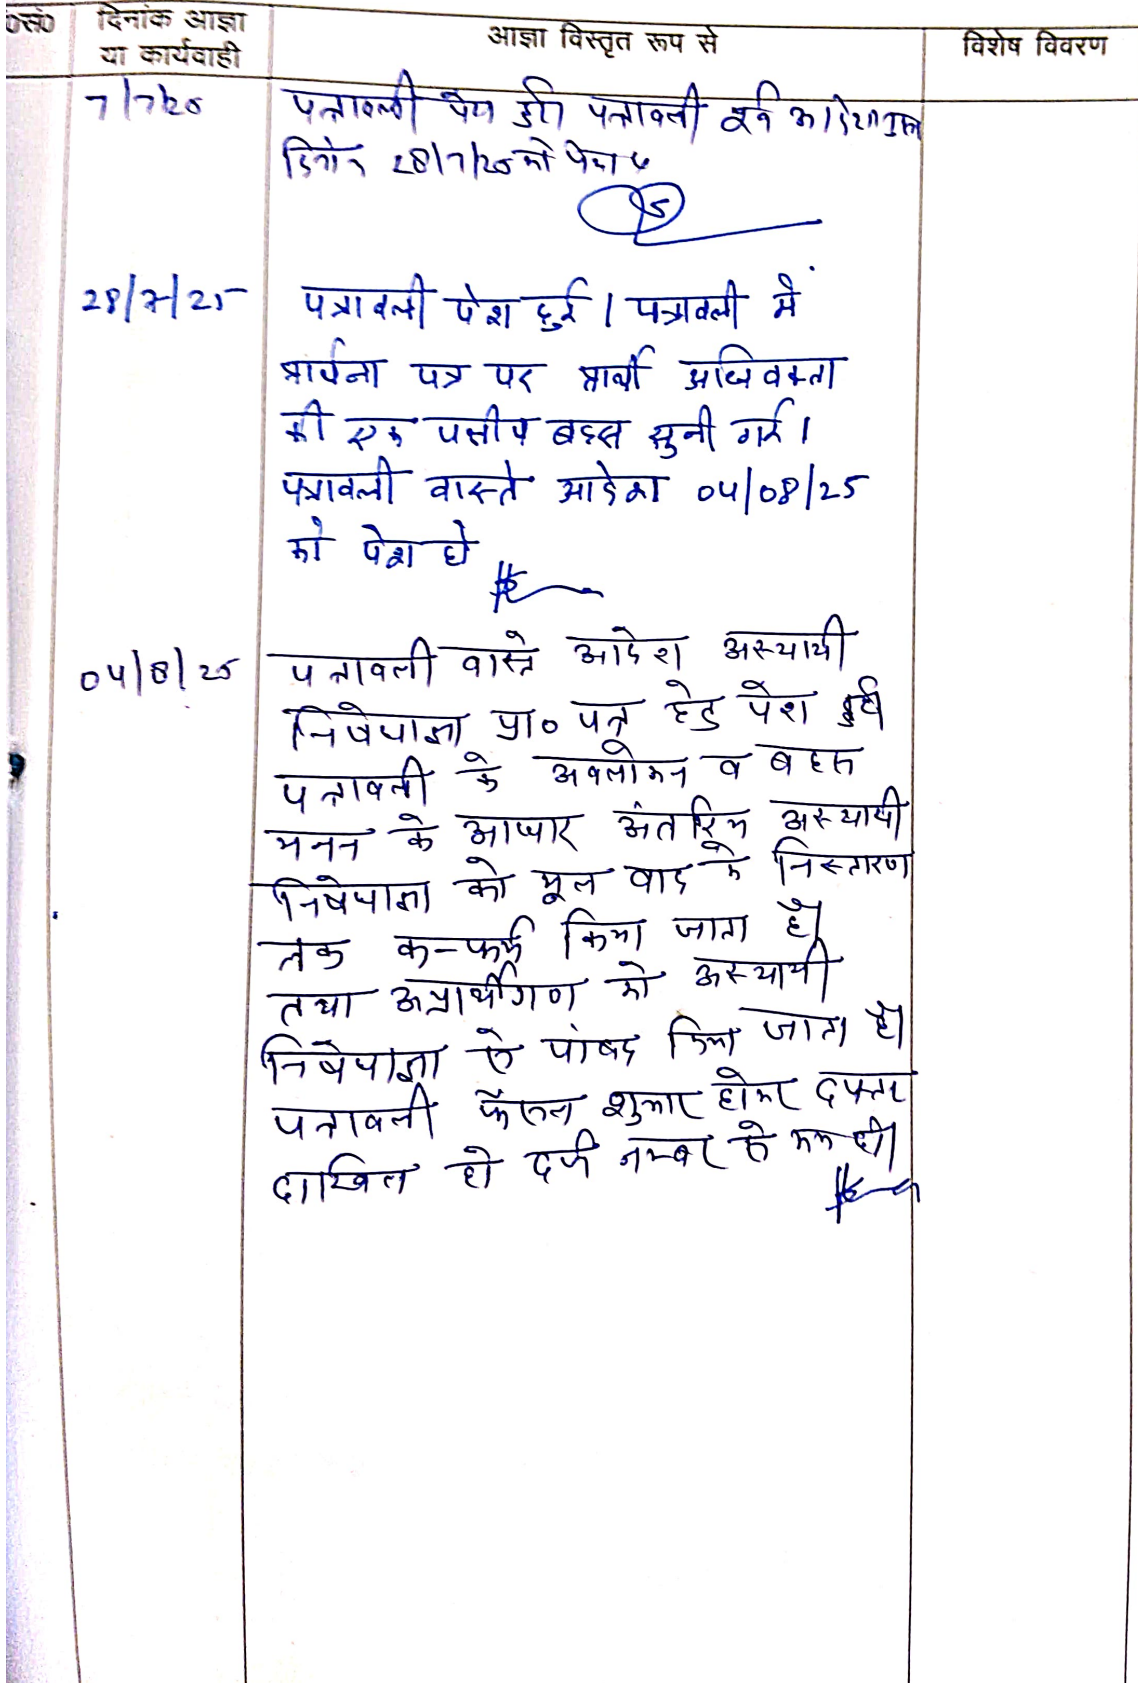 ०सं० दिनांक आज्ञा या कार्यवाही आज्ञा विस्तृत रूप से विशेष विवरण
7/7/25 पत्रावली पेश हुई। पत्रावली पूर्व आदेशानुसार
दिनांक 28/7/25 को पेश
28/7/25 पत्रावली पेश हुई। पत्रावली में
प्रार्थना पत्र पर प्रार्थी अधिवक्ता
की एक पक्षीय बहस सुनी गई।
पत्रावली वास्ते आदेश 04/08/25
को पेश हो
04/8/25 पत्रावली वास्ते आदेश अस्थायी
निषेधाज्ञा प्रा० पत्र हेतु पेश हुई।
पत्रावली के अवलोकन व बहस
मनन के आधार अंतरिम अस्थायी
निषेधाज्ञा को मूल वाद के निस्तारण
तक कन्फर्म किया जाता है।
तथा अप्रार्थीगण को अस्थायी
निषेधाज्ञा से पांबद किया जाता है।
पत्रावली फैसल शुमार होकर दफ्तर
दाखिल हो दर्ज नम्बर से कम हो।